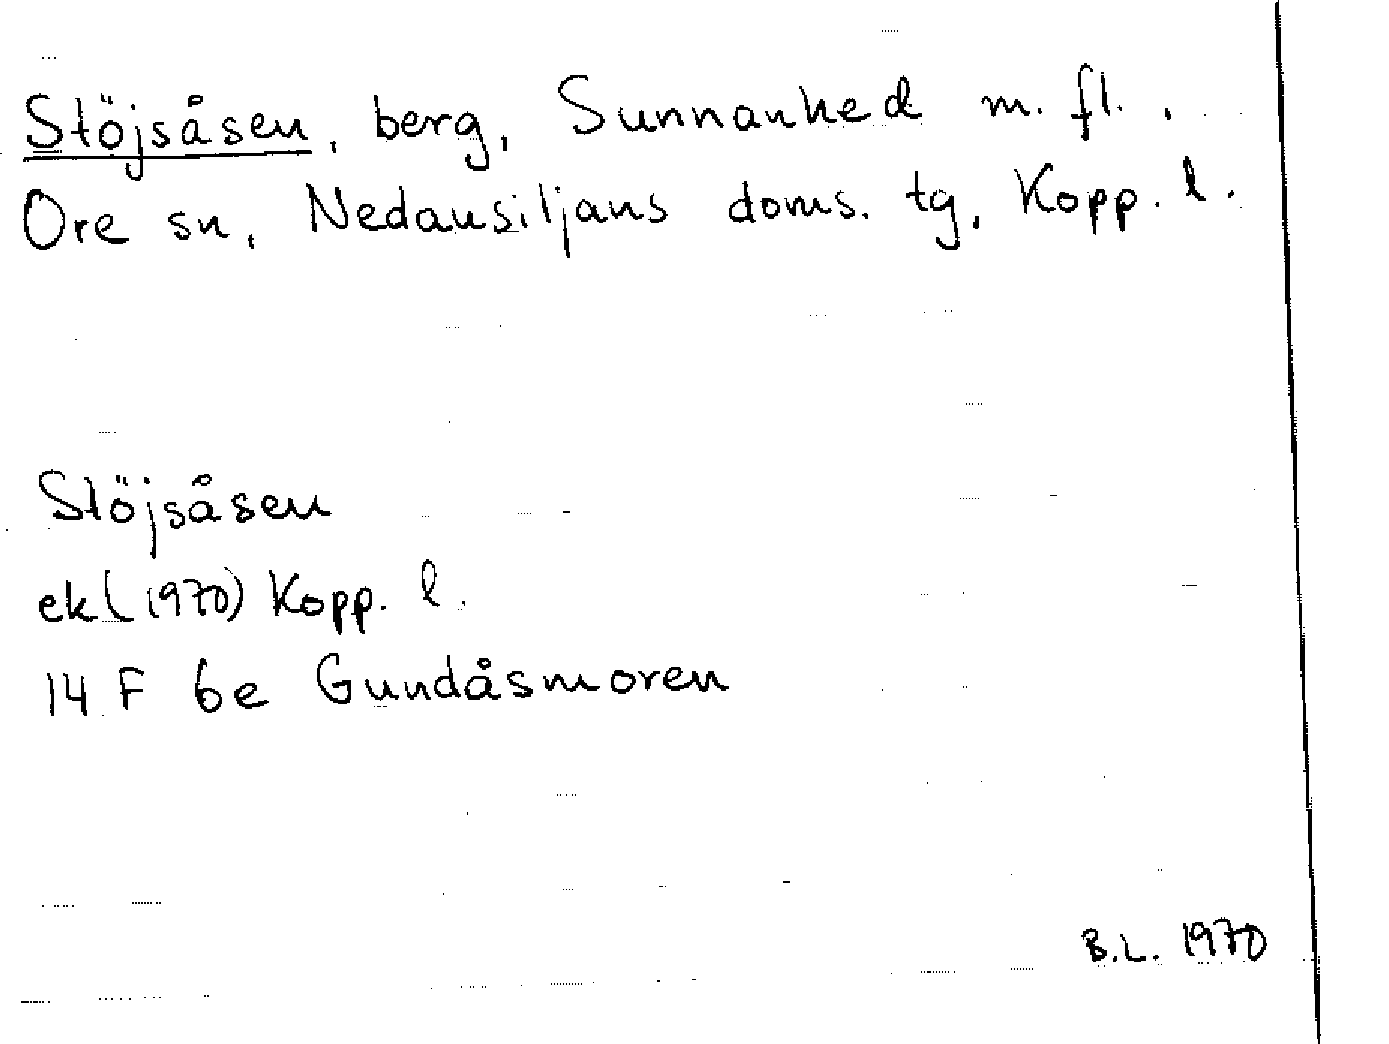 Stöjsåsen, berg, Sunnanhed m. fl.,
Ore sn, Nedansiljans doms. tg, Kopp. l.
Stöjsåsen
ek (1970) Kopp. l.
14 F 6e Gundåsmoren
B.L. 1970